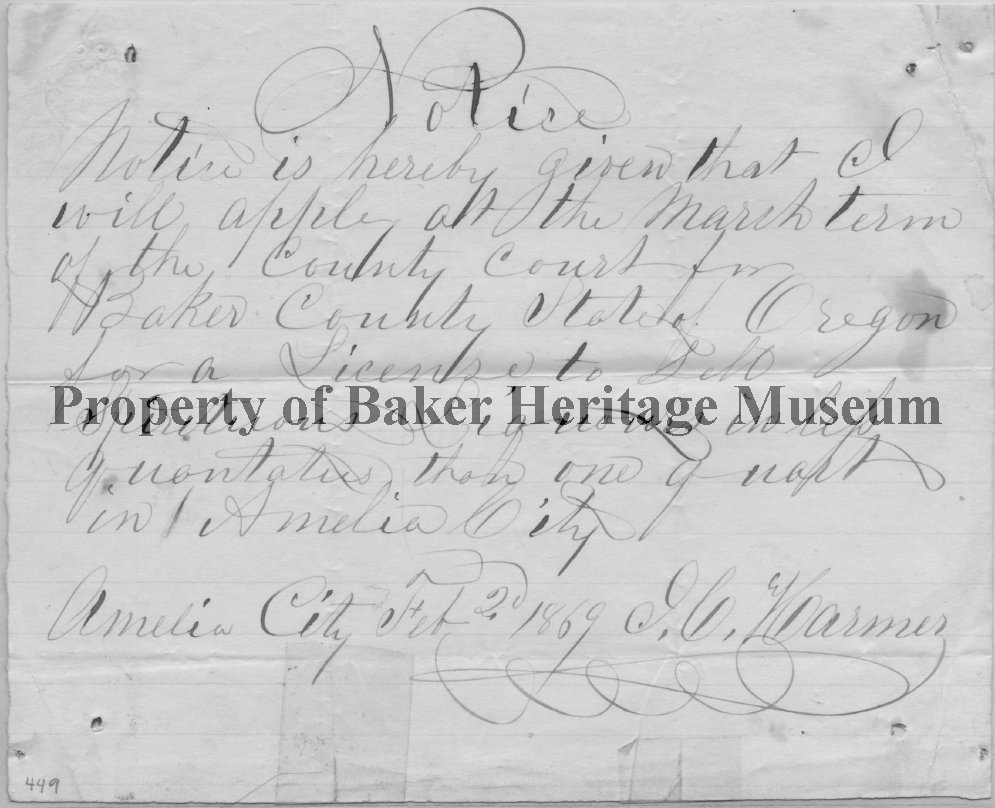 Notice
Notice is hereby given that I
will apply at the March term
of the County Court for
Baker County State of Oregon
for a License to Sell
Property of Baker Heritage Museum
Spirituous Liquors in less
quantaties than one quart
in Amelia City
Amelia City Feb 2d 1869 J. C. Harmer
449